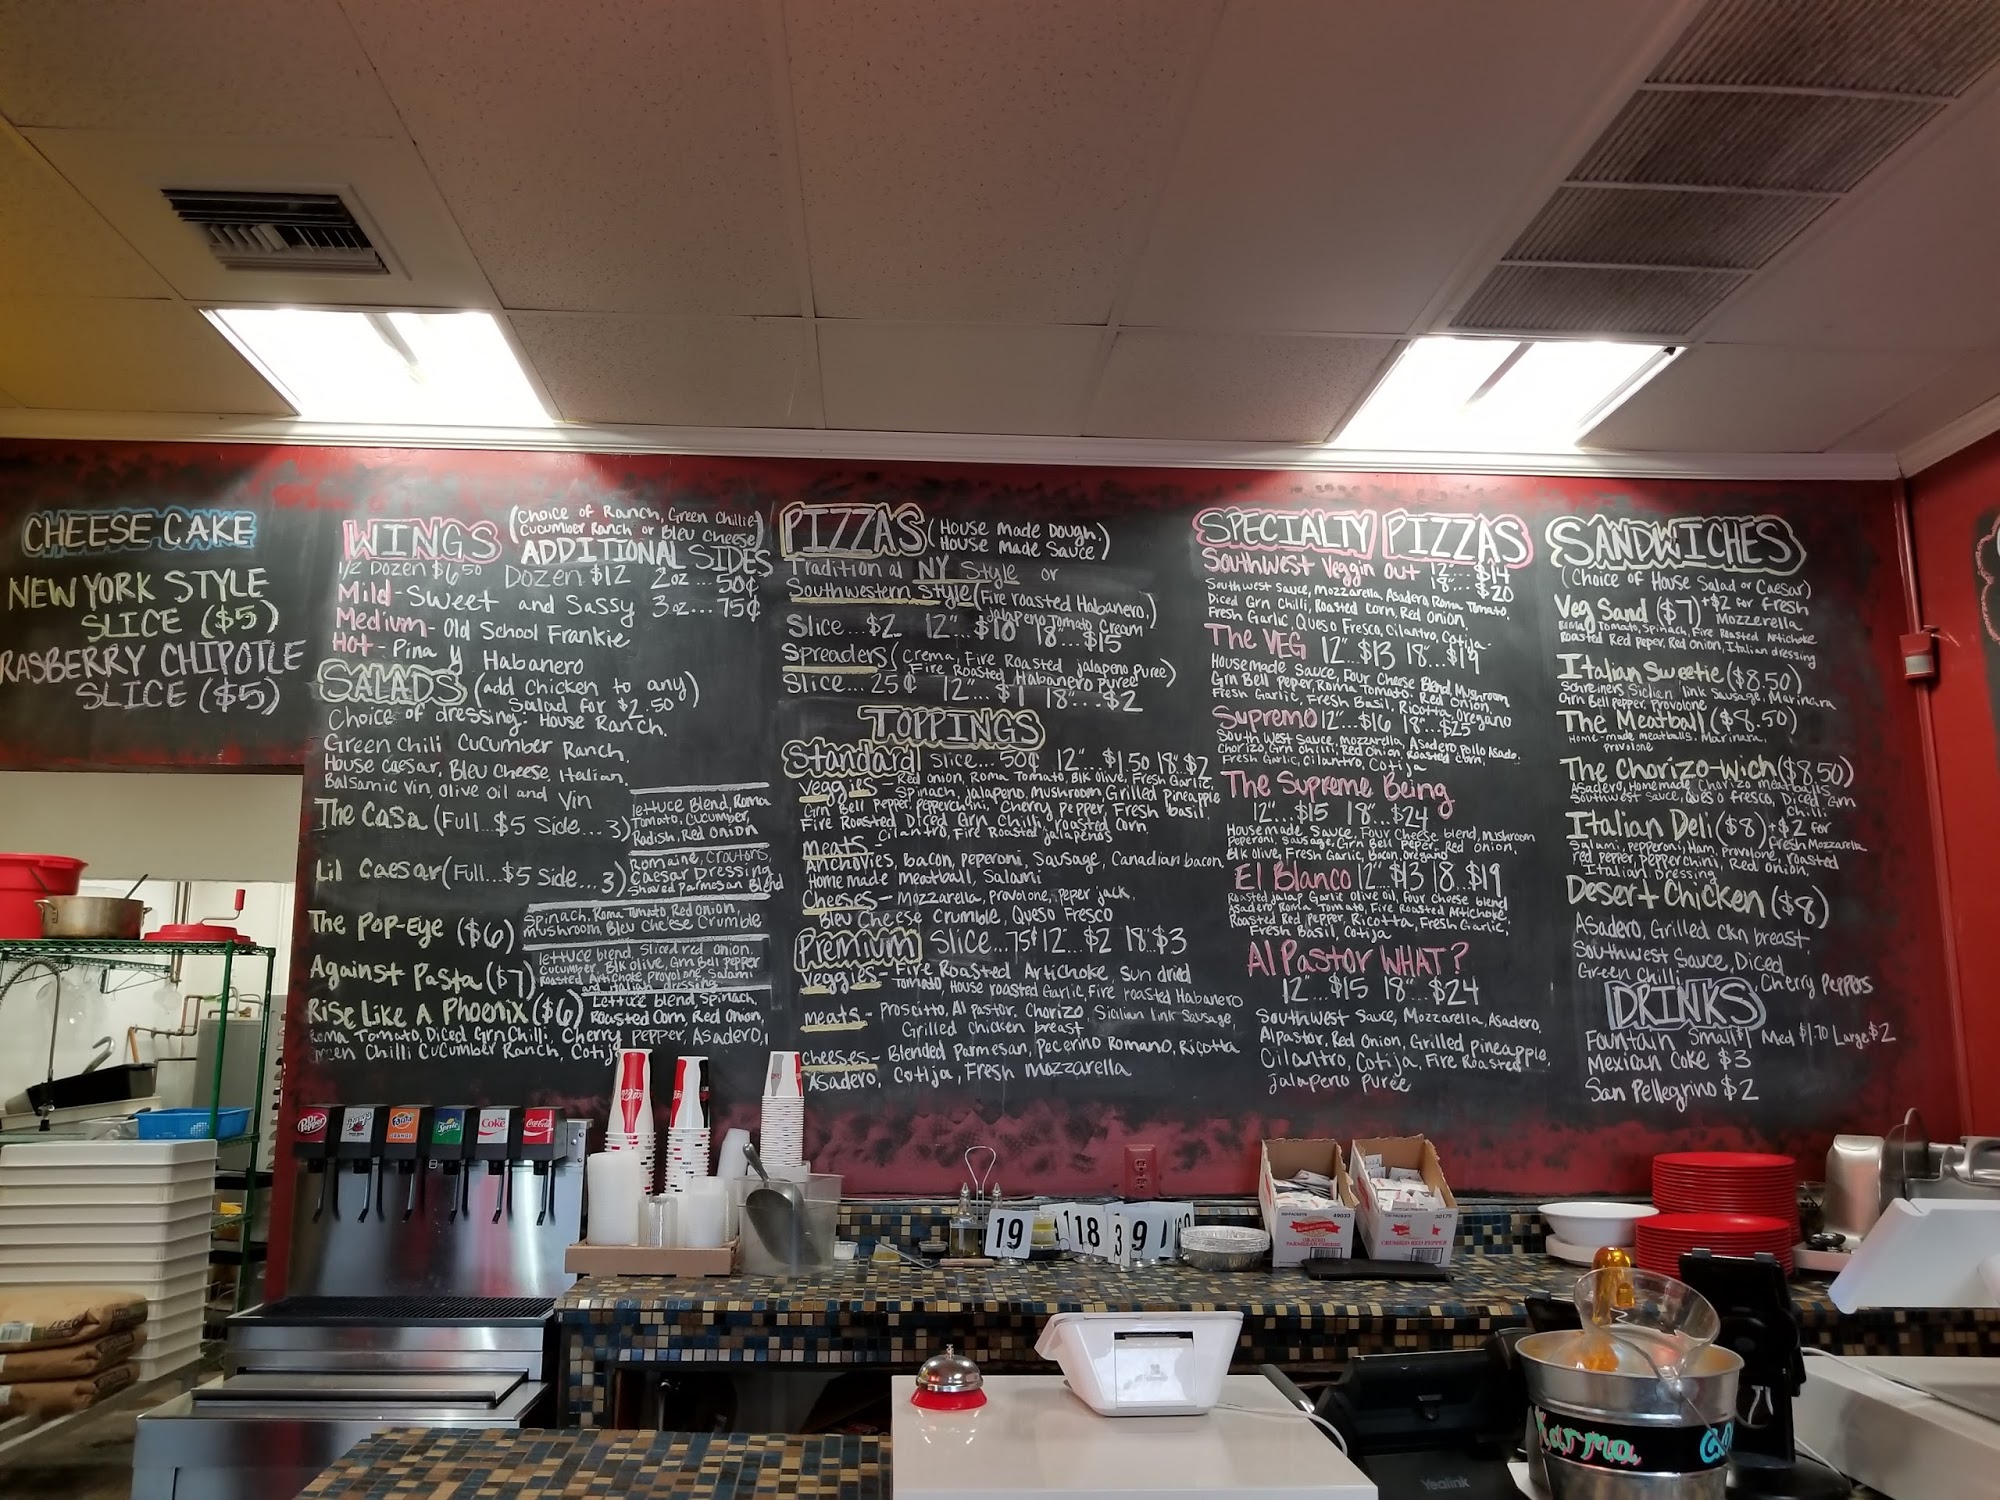 CHEESE CAKE
NEW YORK STYLE
SLICE ($5)
RASBERRY CHIPOTLE
SLICE ($5)
WINGS
(Choice of Ranch, Green Chillie
Cucumber Ranch or Bleu Cheese)
ADDITIONAL SIDES
1/2 Dozen $6.50 Dozen $12 2oz...50¢
Mild - Sweet and Sassy 3oz...75¢
Medium - Old School Frankie
Hot - Pina y Habanero
SALADS (add Chicken to any
Salad for $2.50)
Choice of dressing: House Ranch,
Green Chili Cucumber Ranch,
House Caesar, Bleu Cheese, Italian,
Balsamic Vin, Olive Oil and Vin
The Casa (Full...$5 Side...3)
lettuce Blend, Roma
Tomato, Cucumber,
Radish, Red Onion
Lil Caesar (Full...$5 Side...3)
Romaine, Croutons,
Caesar Dressing
Shaved Parmesan Blend
The Pop-Eye ($6)
Spinach, Roma Tomato, Red Onion,
mushroom, Bleu Cheese Crumble
Against Pasta ($7)
lettuce blend, Sliced red onion,
Cucumber, Blk olive, Grn Bell pepper
Roasted Artichoke, Provolone, Salami
and Italian dressing
Rise Like A Phoenix ($6)
Lettuce blend, Spinach,
Roasted Corn, Red Onion,
Roma Tomato, Diced Grn Chili, Cherry pepper, Asadero,
Green Chilli Cucumber Ranch, Cotija
PIZZAS (House Made Dough.
House Made Sauce)
Traditional NY Style or
Southwestern Style (Fire roasted Habanero,
Jalapeno Tomato Cream)
Slice...$2 12"...$10 18"...$15
Spreaders (Crema, Fire Roasted jalapeno Puree
Fire Roasted Habanero Puree)
Slice...25¢ 12"...$1 18"...$2
TOPPINGS
Standard Slice...50¢ 12"...$1.50 18"...$2
Veggies - Red onion, Roma Tomato, Blk olive, Fresh Garlic,
Spinach, jalapeno, Mushroom, Grilled Pineapple
Grn Bell Pepper, Pepperchini, Cherry Pepper, Fresh basil,
Fire Roasted Diced Grn Chili, roasted Corn,
Cilantro, Fire Roasted jalapenos
meats -
Anchovies, bacon, peperoni, Sausage, Canadian bacon
Home made meatball, Salami
Cheeses - Mozzarella, Provolone, Peper jack,
Bleu Cheese Crumble, Queso Fresco
Premium Slice...75¢ 12"...$2 18"...$3
Veggies - Fire Roasted Artichoke, Sun dried
Tomato, House roasted Garlic, Fire roasted Habanero
meats - Proscitto, Al pastor, Chorizo, Sicilian link Sausage,
Grilled chicken breast
cheeses - Blended Parmesan, Pecerino Romano, Ricotta
Asadero, Cotija, Fresh mozzarella
SPECIALTY PIZZAS
Southwest Veggin Out 12"...$14
18"...$20
Southwest Sauce, Mozzarella, Asadero, Roma Tomato,
Diced Grn Chilli, Roasted Corn, Red Onion,
Fresh Garlic, Queso Fresco, Cilantro, Cotija
The VEG 12"...$13 18"...$19
Housemade Sauce, Four Cheese Blend, Mushroom
Grn Bell Pepper, Roma Tomato, Red Onion,
Fresh Garlic, Fresh Basil, Ricotta, Oregano
Supremo 12"...$16 18"...$25
South West Sauce, Mozzarella, Asadero, Pollo Asado,
Chorizo, Grn Chilli, Red Onion, Roasted corn,
Fresh Garlic, Cilantro, Cotija
The Supreme Being
12"...$15 18"...$24
House made Sauce, Four Cheese blend, Mushroom
Peperoni, Sausage, Grn Bell Peper, Red Onion,
Blk olive, Fresh Garlic, Bacon, oregano
El Blanco 12"...$13 18...$19
Roasted Jalap Garlic Olive oil, Four Cheese blend
Asadero, Roma Tomato, Fire Roasted Artichoke,
Roasted Red Pepper, Ricotta, Fresh Garlic,
Fresh Basil, Cotija
Al Pastor WHAT?
12"...$15 18"...$24
Southwest Sauce, Mozzarella, Asadero,
Alpastor, Red Onion, Grilled Pineapple,
Cilantro, Cotija, Fire Roasted
jalapeno Puree
SANDWICHES
(Choice of House Salad or Caesar)
Veg Sand ($7) +$2 for fresh
Mozzerella
Roma Tomato, Spinach, Fire Roasted Artichoke
Roasted Red Peper, Red Onion, Italian dressing
Italian Sweetie ($8.50)
Schreiners Sicilian link Sausage, Marinara
Grn Bell pepper, Provolone
The Meatball ($8.50)
Home-made meatballs, Marinara,
Provolone
The Chorizo-wich ($8.50)
Asadero, Homemade Chorizo meatballs
Southwest Sauce, Queso fresco, Diced Grn
Chili
Italian Deli ($8) +$2 for
Fresh Mozzarella
Salami, Pepperoni, Ham, Provolone, roasted
red pepper, Pepperchini, Red Onion,
Italian Dressing
Desert Chicken ($8)
Asadero, Grilled Ckn breast
Southwest Sauce, Diced
Green Chilli, Cherry Peppers
DRINKS
Fountain Small $1 Med $1.70 Large $2
Mexican Coke $3
San Pellegrino $2
Dr Pepper
Fanta
ORANGE
Sprite
Coke
Coca-Cola
19
18
3
9
Karma
Yealink